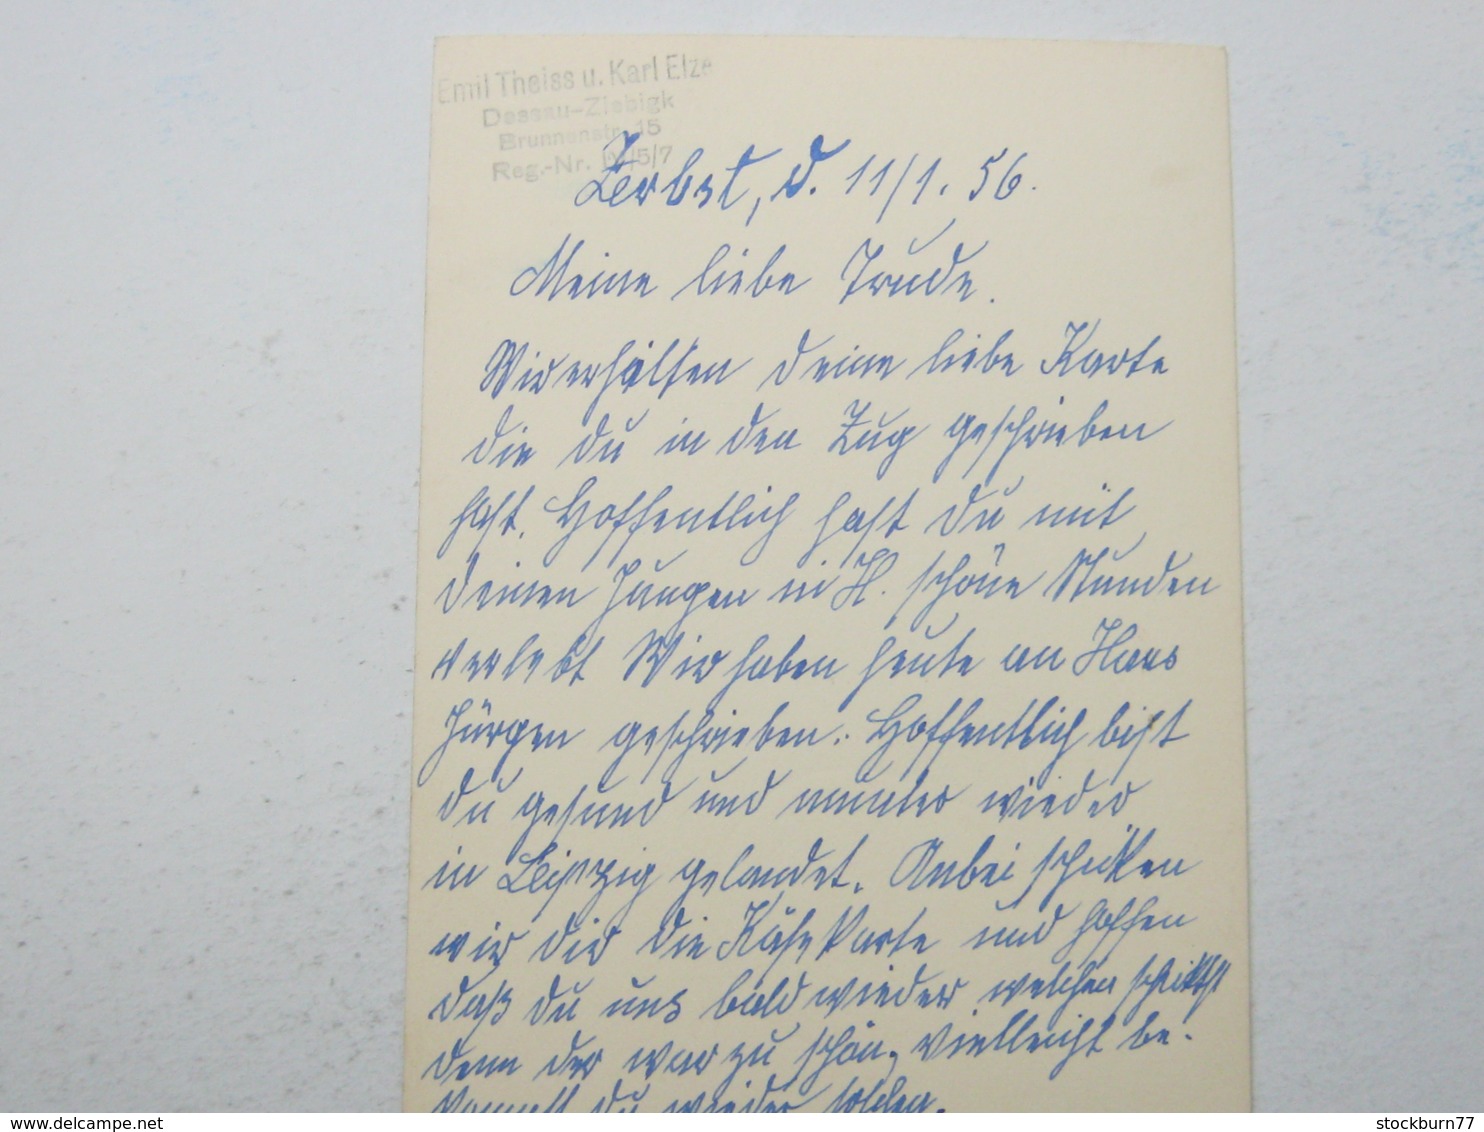 Emil Theiss u. Karl Elze
Dessau-Ziebigk
Brunnenstr. 15
Reg.-Nr. /5/7
Zerbst, d. 11/1. 56.
Meine liebe Trude.
Wir erhilten deine liebe Karte
die du in den Zug geschrieben
hast. Hoffentlich hast du mit
deinen Jungen in H. schöne Stunden
verlebt Wir haben heute an Hans
Jürgen geschrieben. Hoffentlich bist
du gesund und munter wieder
in Leipzig gelandet. Anbei schicken
wir dir die Käsekarte und hoffen
daß du uns bald wieder welchen schickst
denn der war zu schön, vielleicht be-
kommst du wieder solchen.
www.delcampe.net
stockburn77